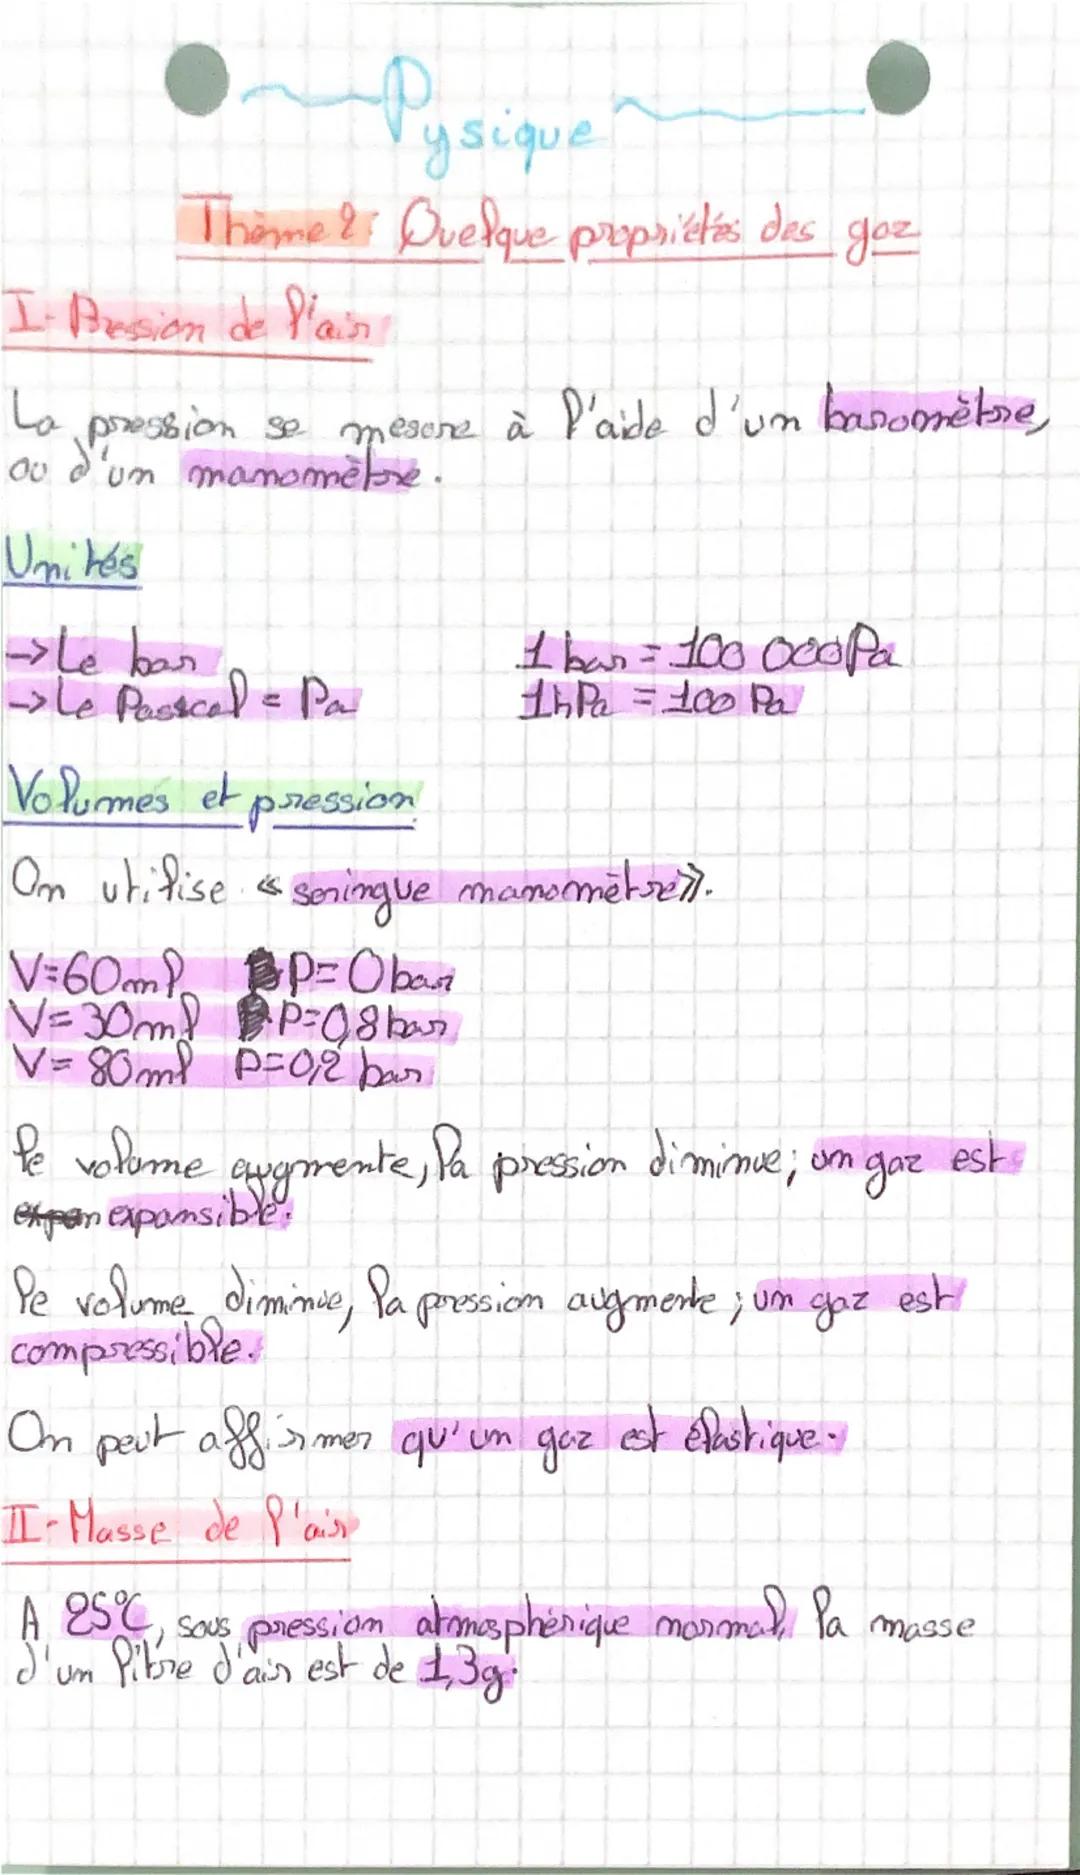 Pysique
Thème 2: Quelque propriétés des gaz
I- Pression de l'air
La pression se mesure à l'aide d'un baromètre,
ou d'un manomètre.
Unités
-> Le bar
1 bar = 100 000 Pa
-> Le Pascal = Pa
1hPa = 100 Pa
Volumes et pression
On utilise « seringue manomètre».
V=60ml P=0bar
V=30ml P=0,8bar
V= 80ml P=0,2 bar
le volume augmente, la pression diminue; un gaz est
expan expansible.
le volume diminue, la pression augmente ; un gaz est
compressible.
On peut affirmer qu'un gaz est élastique.
II- Masse de l'air
A 25°C, sous pression atmosphérique normal, la masse
d'un litre d'air est de 1,3g.